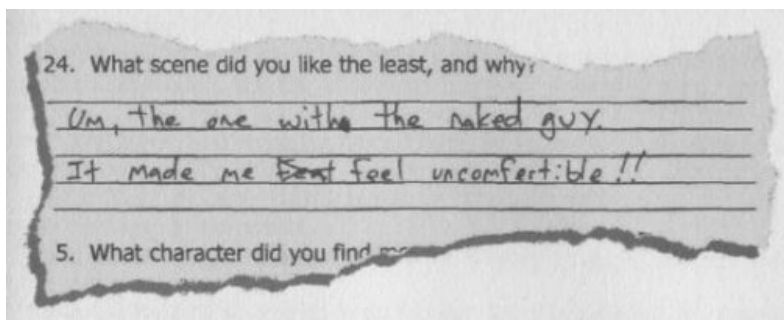 24. What scene did you like the least, and why
Um, the one with the naked guy.
It made me feel uncomfertible!!
5. What character did you find